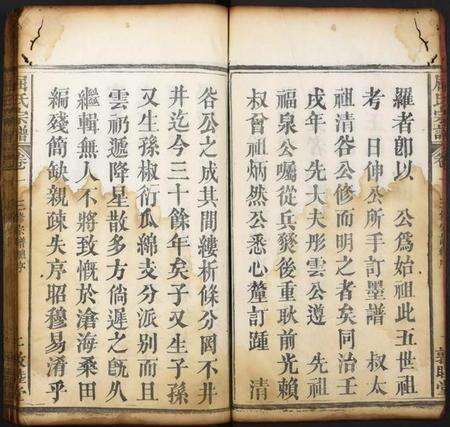 羅者卽以　公爲始祖此五世祖
考　日伸公所手訂墨譜　叔太
祖清谷公修而明之者矣同治壬
戌年　先大夫彤雲公遵　先祖
福泉公囑從兵燹後重耿前光賴
叔曾祖炳然公悉心釐訂踵　清
谷公之成其間縷析條分罔不井
井迄今三十餘年矣子又生子孫
又生孫椒衍瓜綿支分派別而且
雲礽遞降星散多方倘遲之旣久
繼輯無人不將致慨於滄海桑田
編殘簡缺親疎失序昭穆易淆乎
氏宗譜
卷
二
敦睦堂